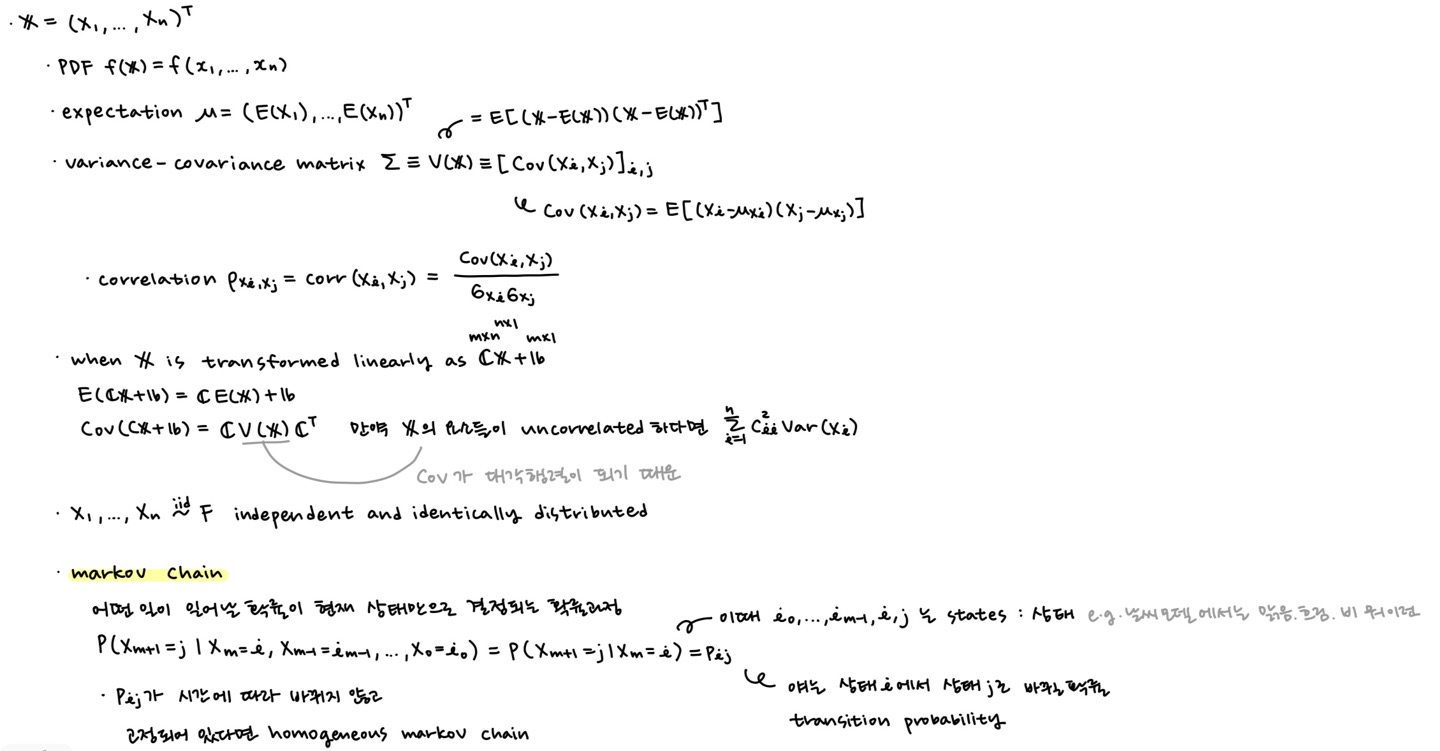 · 𝕏 = (X₁, ..., Xₙ)ᵀ
· PDF f(𝕏) = f(x₁, ..., xₙ)
· expectation μ = (E(X₁), ..., E(Xₙ))ᵀ
= E[(𝕏-E(𝕏))(𝕏-E(𝕏))ᵀ]
· variance-covariance matrix Σ ≡ V(𝕏) ≡ [Cov(Xi, Xj)]i,j
Cov(Xi, Xj) = E[(Xi-μxi)(Xj-μxj)]
· correlation ρxi,xj = corr(Xi, Xj) = Cov(Xi, Xj) / σxiσxj
m×n n×1 m×1
· when 𝕏 is transformed linearly as ℂ𝕏+𝕓
E(ℂ𝕏+𝕓) = ℂE(𝕏)+𝕓
Cov(ℂ𝕏+𝕓) = ℂV(𝕏)ℂᵀ 만약 𝕏의 요소들이 uncorrelated 하다면 Σⁿᵢ₌₁ C²ii Var(Xi)
Cov가 대각행렬이 되기 때문
· X₁, ..., Xₙ iid ~ F independent and identically distributed
· markov chain
어떤 일이 일어날 확률이 현재 상태만으로 결정되는 확률과정
이때 i₀, ..., im-1, i, j 는 states : 상태 e.g. 날씨모델에서는 맑음. 흐림. 비 뭐이런
P(Xm+1=j | Xm=i, Xm-1=im-1, ..., X₀=i₀) = P(Xm+1=j | Xm=i) = Pij
얘는 상태 i에서 상태 j로 바뀌는 확률
· Pij가 시간에 따라 바뀌지 않고
transition probability
고정되어 있다면 homogeneous markov chain